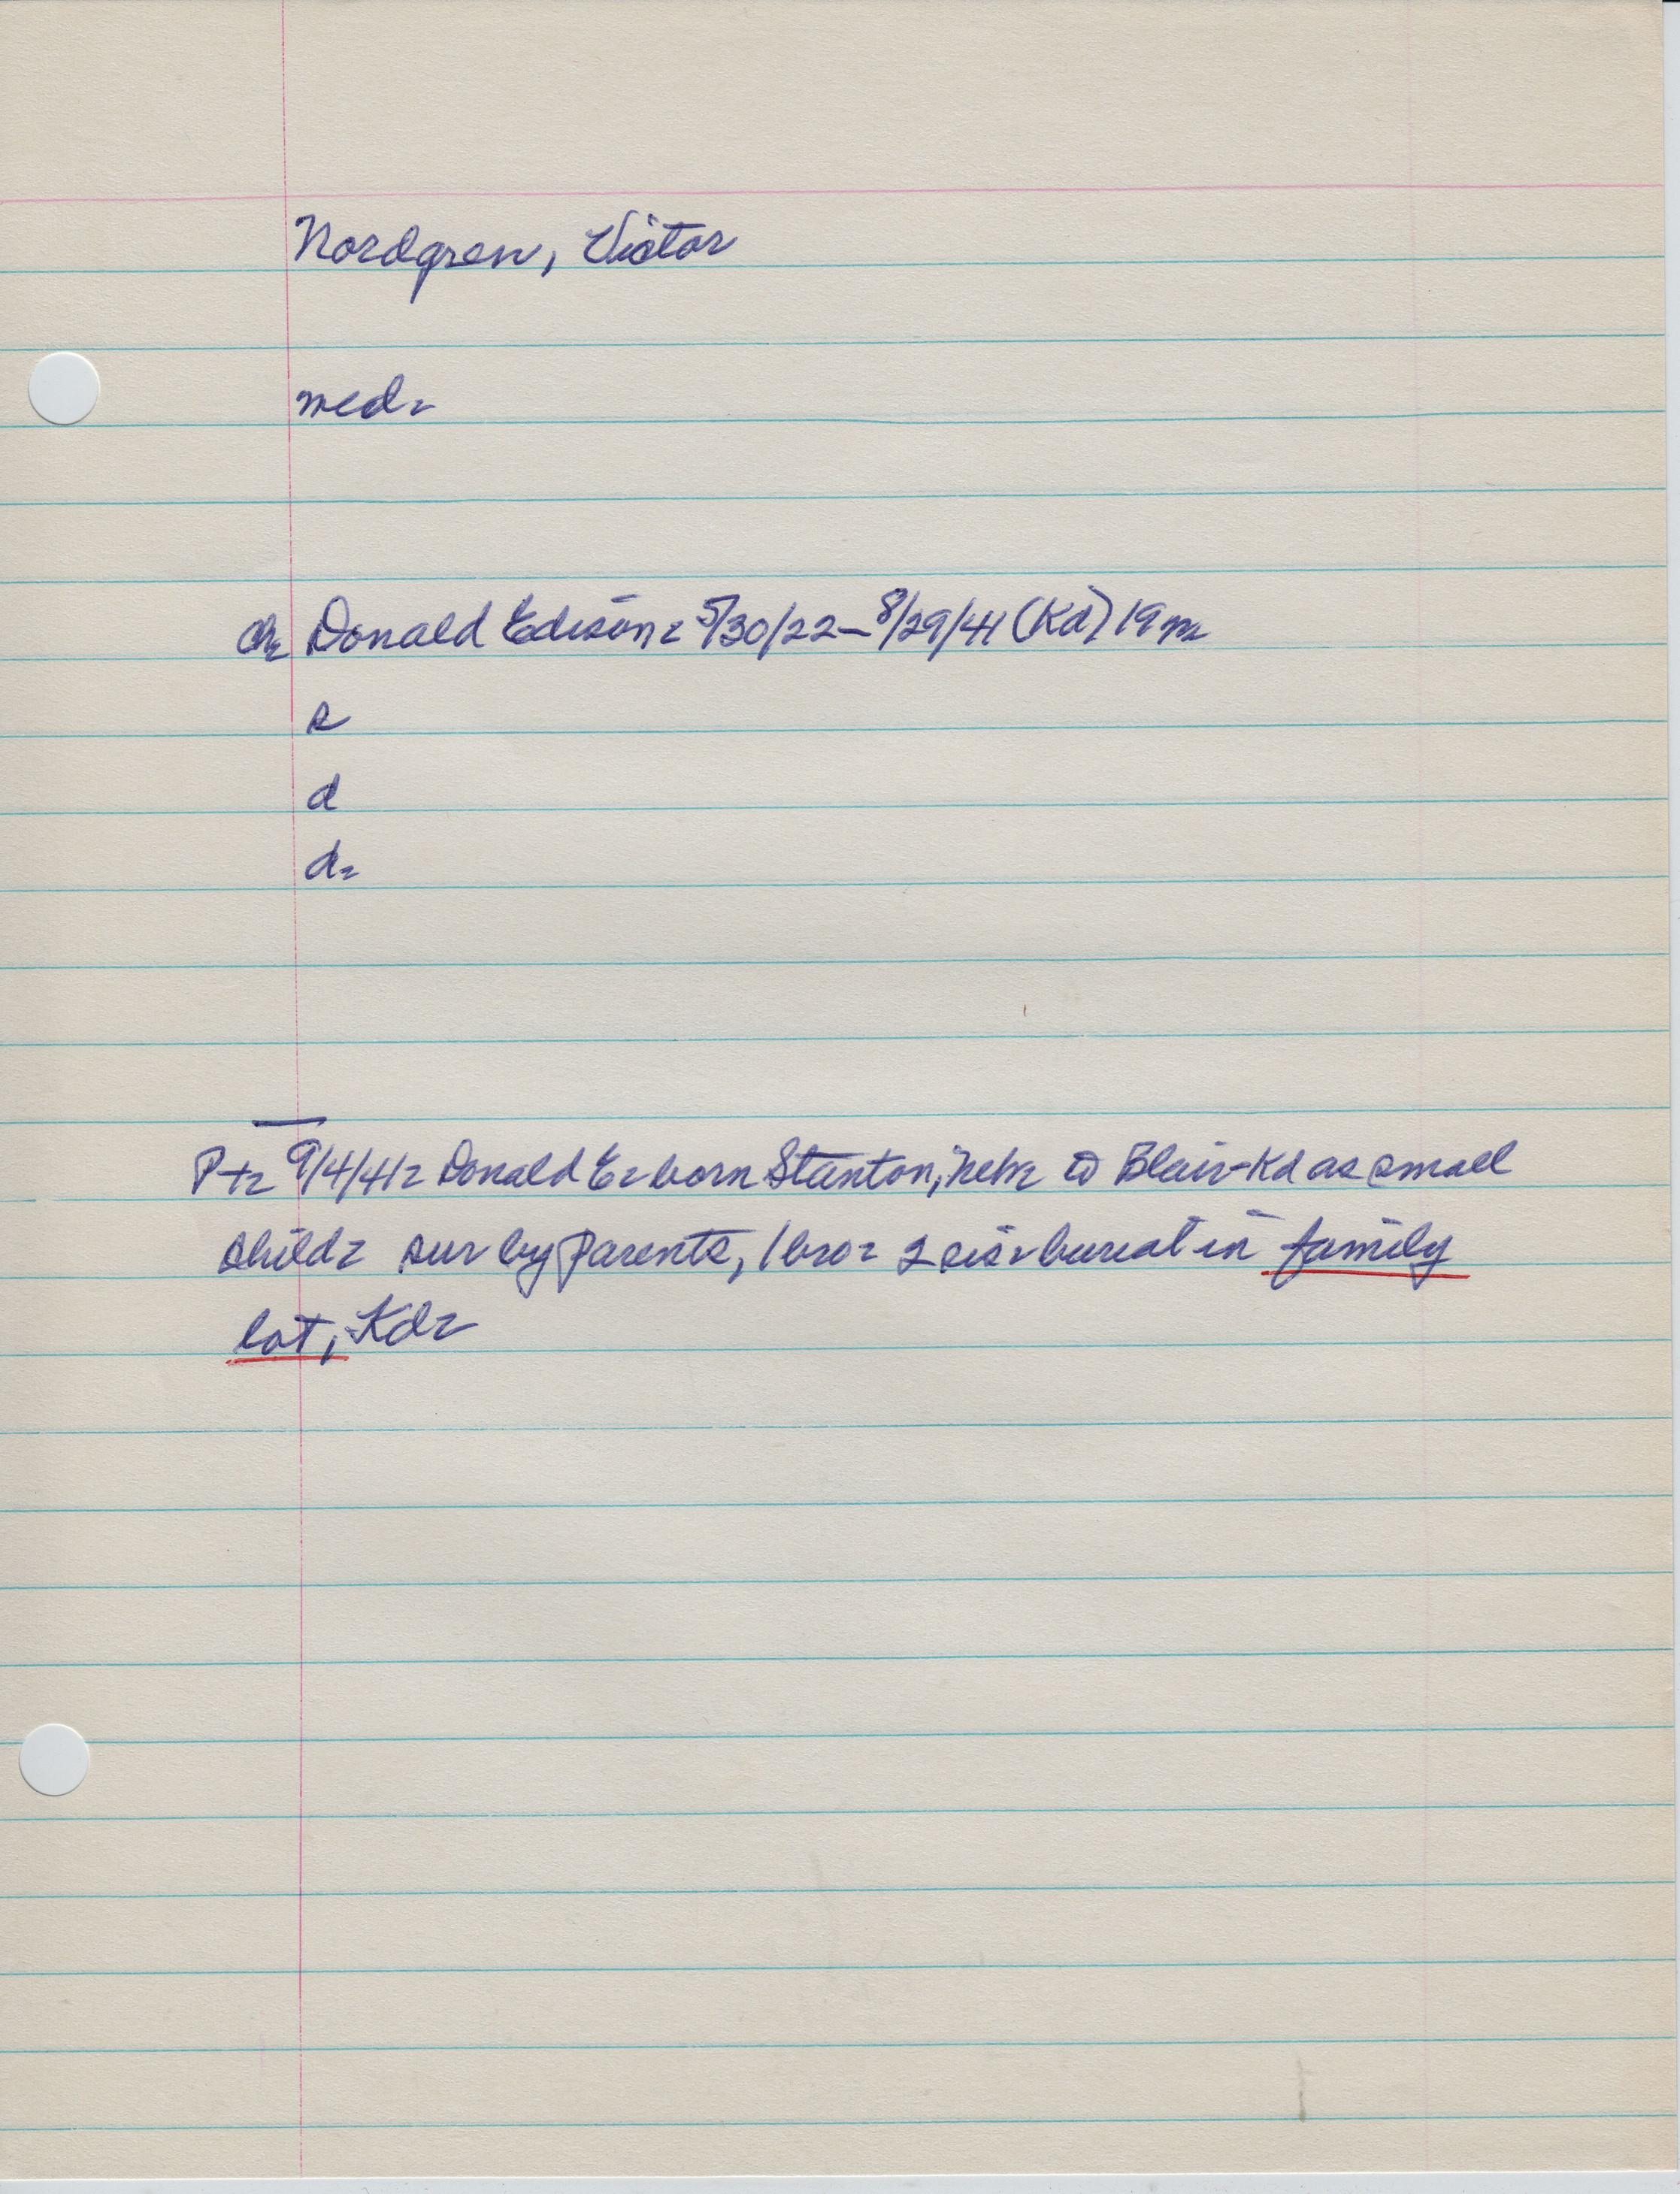 Nordgren, Victor
med.
ch. Donald Edison. 5/30/22 – 8/29/41 (Kd) 19 m.
s
d
d.
Pt. 9/4/41. Donald E. born Stanton, Nebr. to Blair-Kd as small
child. sur by parents, 1 bro. 2 sis. burial in family
lot, Kd.